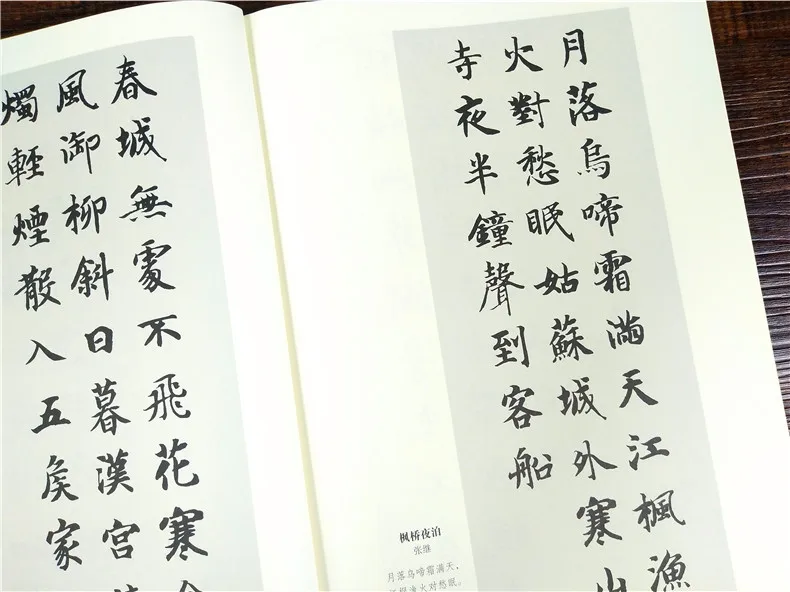 春城無處不飛花寒
風御柳斜日暮漢宮
燭輕煙散入五侯家
月落烏啼霜滿天江楓漁
火對愁眠姑蘇城外寒
寺夜半鐘聲到客船
枫桥夜泊
张继
月落乌啼霜满天，
江枫渔火对愁眠。